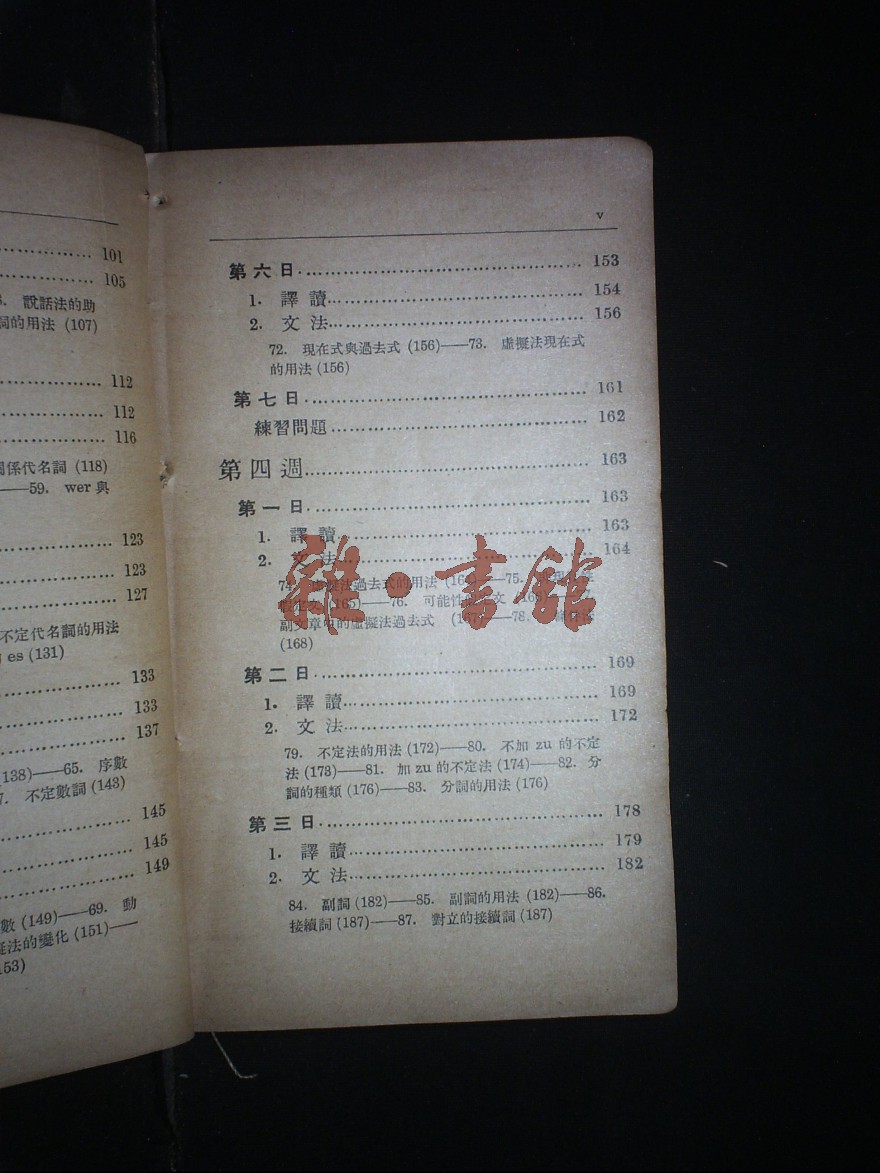 101
105
說話法的助
詞的用法 (107)
112
112
116
關係代名詞 (118)
——59. wer 與
123
123
127
不定代名詞的用法
es (131)
133
133
137
(138)——65. 序數
不定數詞 (143)
145
145
149
數 (149)——69. 動
擬法的變化 (151)——
153)
v
第六日 153
1. 譯讀 154
2. 文法 156
72. 現在式與過去式 (156)——73. 虛擬法現在式
的用法 (156)
第七日 161
練習問題 162
第四週 163
第一日 163
1. 譯讀 163
2. 文法 164
74. 虛擬法過去式的用法 (164)——75.
假定文 (165)——76. 可能性
副文章中的虛擬法過去式 ——78.
(168)
第二日 169
1. 譯讀 169
2. 文法 172
79. 不定法的用法 (172)——80. 不加 zu 的不定
法 (173)——81. 加 zu 的不定法 (174)——82. 分
詞的種類 (176)——83. 分詞的用法 (176)
第三日 178
1. 譯讀 179
2. 文法 182
84. 副詞 (182)——85. 副詞的用法 (182)——86.
接續詞 (187)——87. 對立的接續詞 (187)
雜·書館